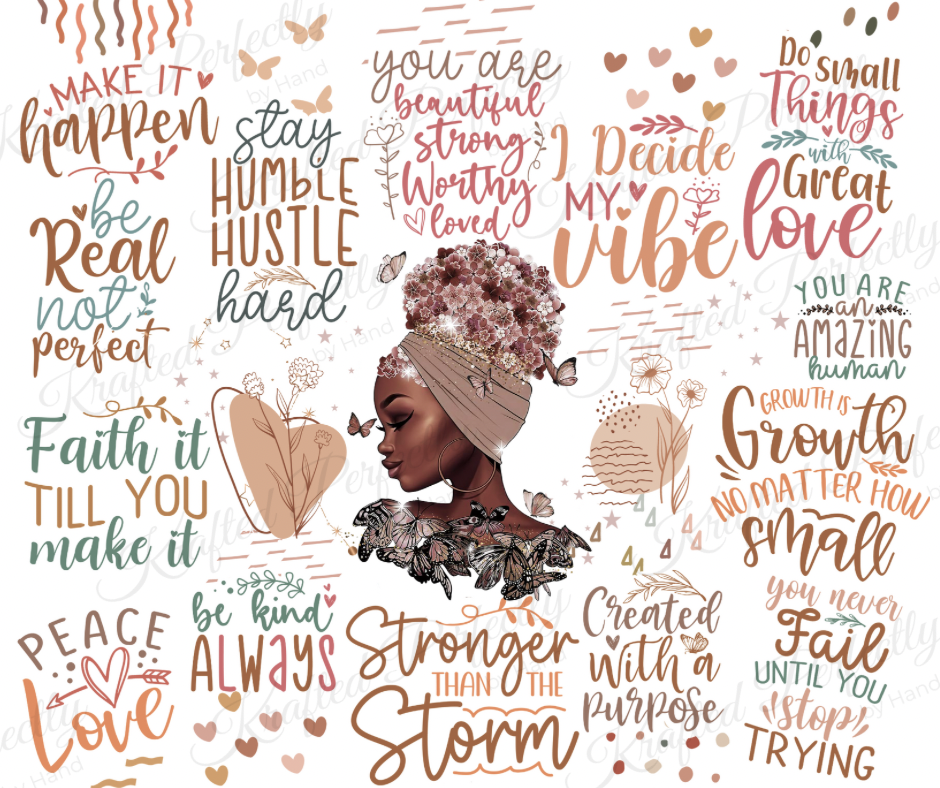 MAKE IT
happen
be
Real
not
perfect
Faith it
TILL YOU
make it
PEACE
Love
stay
HUMBLE
HUSTLE
hard
be kind
ALWAYS
you are
beautiful
strong
Worthy
loved
Stronger
THAN THE
Storm
I Decide
MY
vibe
Created
With a
purpose
Do small
Things
with
Great
love
YOU ARE
an
AMAZING
human
GROWTH IS
Growth
NO MATTER HOW
small
you never
Fail
UNTIL YOU
stop
TRYING
Krafted Perfectly
by Hand
Krafted Perfectly
by Hand
Krafted Perfectly
by Hand